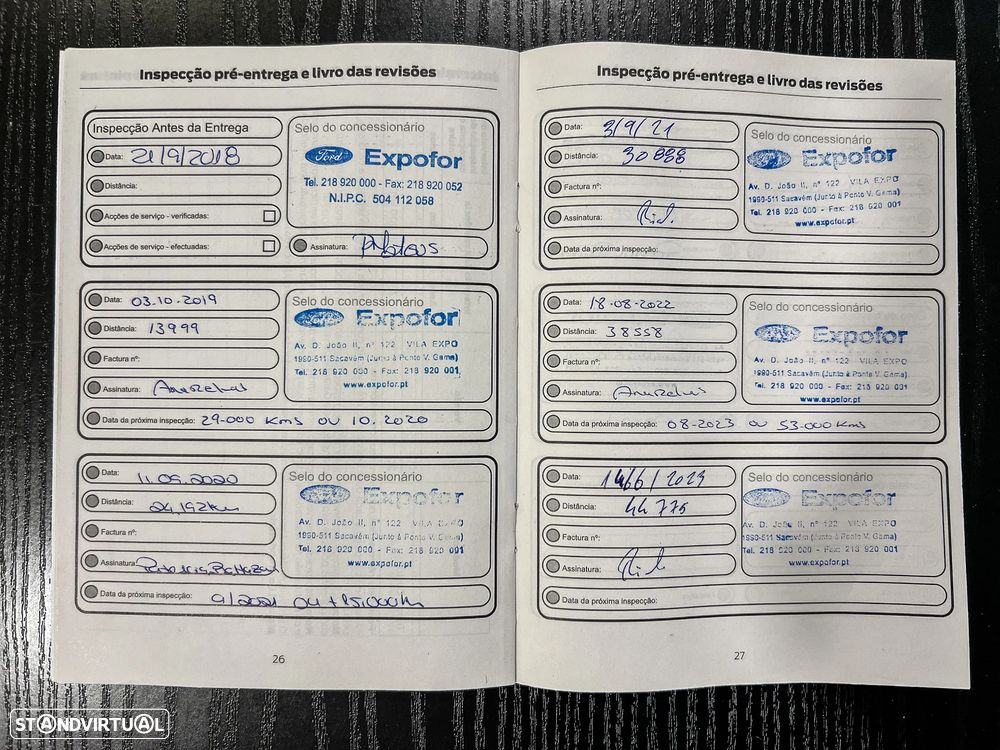 Inspecção pré-entrega e livro das revisões
Inspecção Antes da Entrega
Data: 21/9/2018
Distância:
Acções de serviço - verificadas:
Acções de serviço - efectuadas:
Selo do concessionário
Ford Expofor
Tel. 218 920 000 - Fax: 218 920 052
N.I.P.C. 504 112 058
Assinatura:
Data: 03.10.2019
Distância: 13999
Factura nº:
Assinatura:
Selo do concessionário
Ford Expofor
Av. D. João II, nº 122 VILA EXPO
1990-511 Sacavém (Junto à Ponte V. Gama)
Tel. 218 920 000 - Fax: 218 920 001
www.expofor.pt
Data da próxima inspecção: 29.000 Kms OU 10.2020
Data: 11.09.2020
Distância: 24,192Km
Factura nº:
Assinatura:
Selo do concessionário
Expofor
Av. D. João II, nº 122 VILA EXPO
1990-511 Sacavém (Junto à Ponte V. Gama)
Tel. 218 920 000 - Fax: 218 920 001
www.expofor.pt
Data da próxima inspecção: 9/2021 OU +15.000Km
26
Inspecção pré-entrega e livro das revisões
Data: 3/9/21
Distância: 30888
Factura nº:
Assinatura:
Selo do concessionário
Expofor
Av. D. João II, nº 122 VILA EXPO
1990-511 Sacavém (Junto à Ponte V. Gama)
Tel. 218 920 000 - Fax: 218 920 001
www.expofor.pt
Data da próxima inspecção:
Data: 18.08.2022
Distância: 38558
Factura nº:
Assinatura:
Selo do concessionário
Expofor
Av. D. João II, nº 122 VILA EXPO
1990-511 Sacavém (Junto à Ponte V. Gama)
Tel. 218 920 000 - Fax: 218 920 001
www.expofor.pt
Data da próxima inspecção: 08-2023 ou 53.000Kms
Data:
Distância: 44775
Factura nº:
Assinatura:
Selo do concessionário
Expofor
Av. D. João II, nº 122 VILA EXPO
1990-511 Sacavém (Junto à Ponte V. Gama)
Tel. 218 920 000 - Fax: 218 920 001
www.expofor.pt
Data da próxima inspecção:
27
STANDVIRTUAL